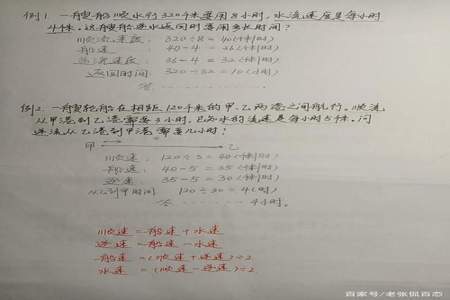 例1 一艘船顺水行320千米要用8小时,水流速度是每小时
4千米。这艘船逆水返回时需用多长时间?
顺流速度: 320÷8=40(千米/时)
船速: 40-4=36(千米/时)
逆流速度: 36-4=32(千米/时)
返回时间: 320÷32=10(时)
答
例2. 一艘轮船在相距120千米的甲、乙两港之间航行。顺流,
从甲港到乙港需要3小时,已知水的流速是每小时5千米。问
逆流从乙港到甲港需要几小时?
甲 乙
顺速: 120÷3=40(千米/时)
船速: 40-5=35(千米/时)
逆速: 35-5=30(千米/时)
从乙到甲时间 120÷30=4(时)
答 4小时。
顺速=船速+水速
逆速=船速-水速
船速=(顺速+逆速)÷2
水速=(顺速-逆速)÷2
百家号/老张侃百态